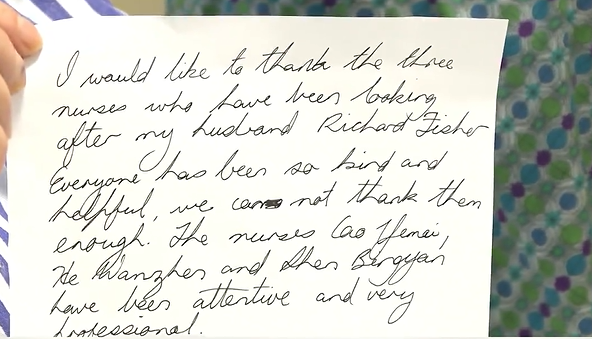 I would like to thank the three
nurses who have been looking
after my husband Richard Fisher
Everyone has been so kind and
helpful, we can not thank them
enough. The nurses Cao
He Wanzhen and Shen Bingyan
have been attentive and very
professional.